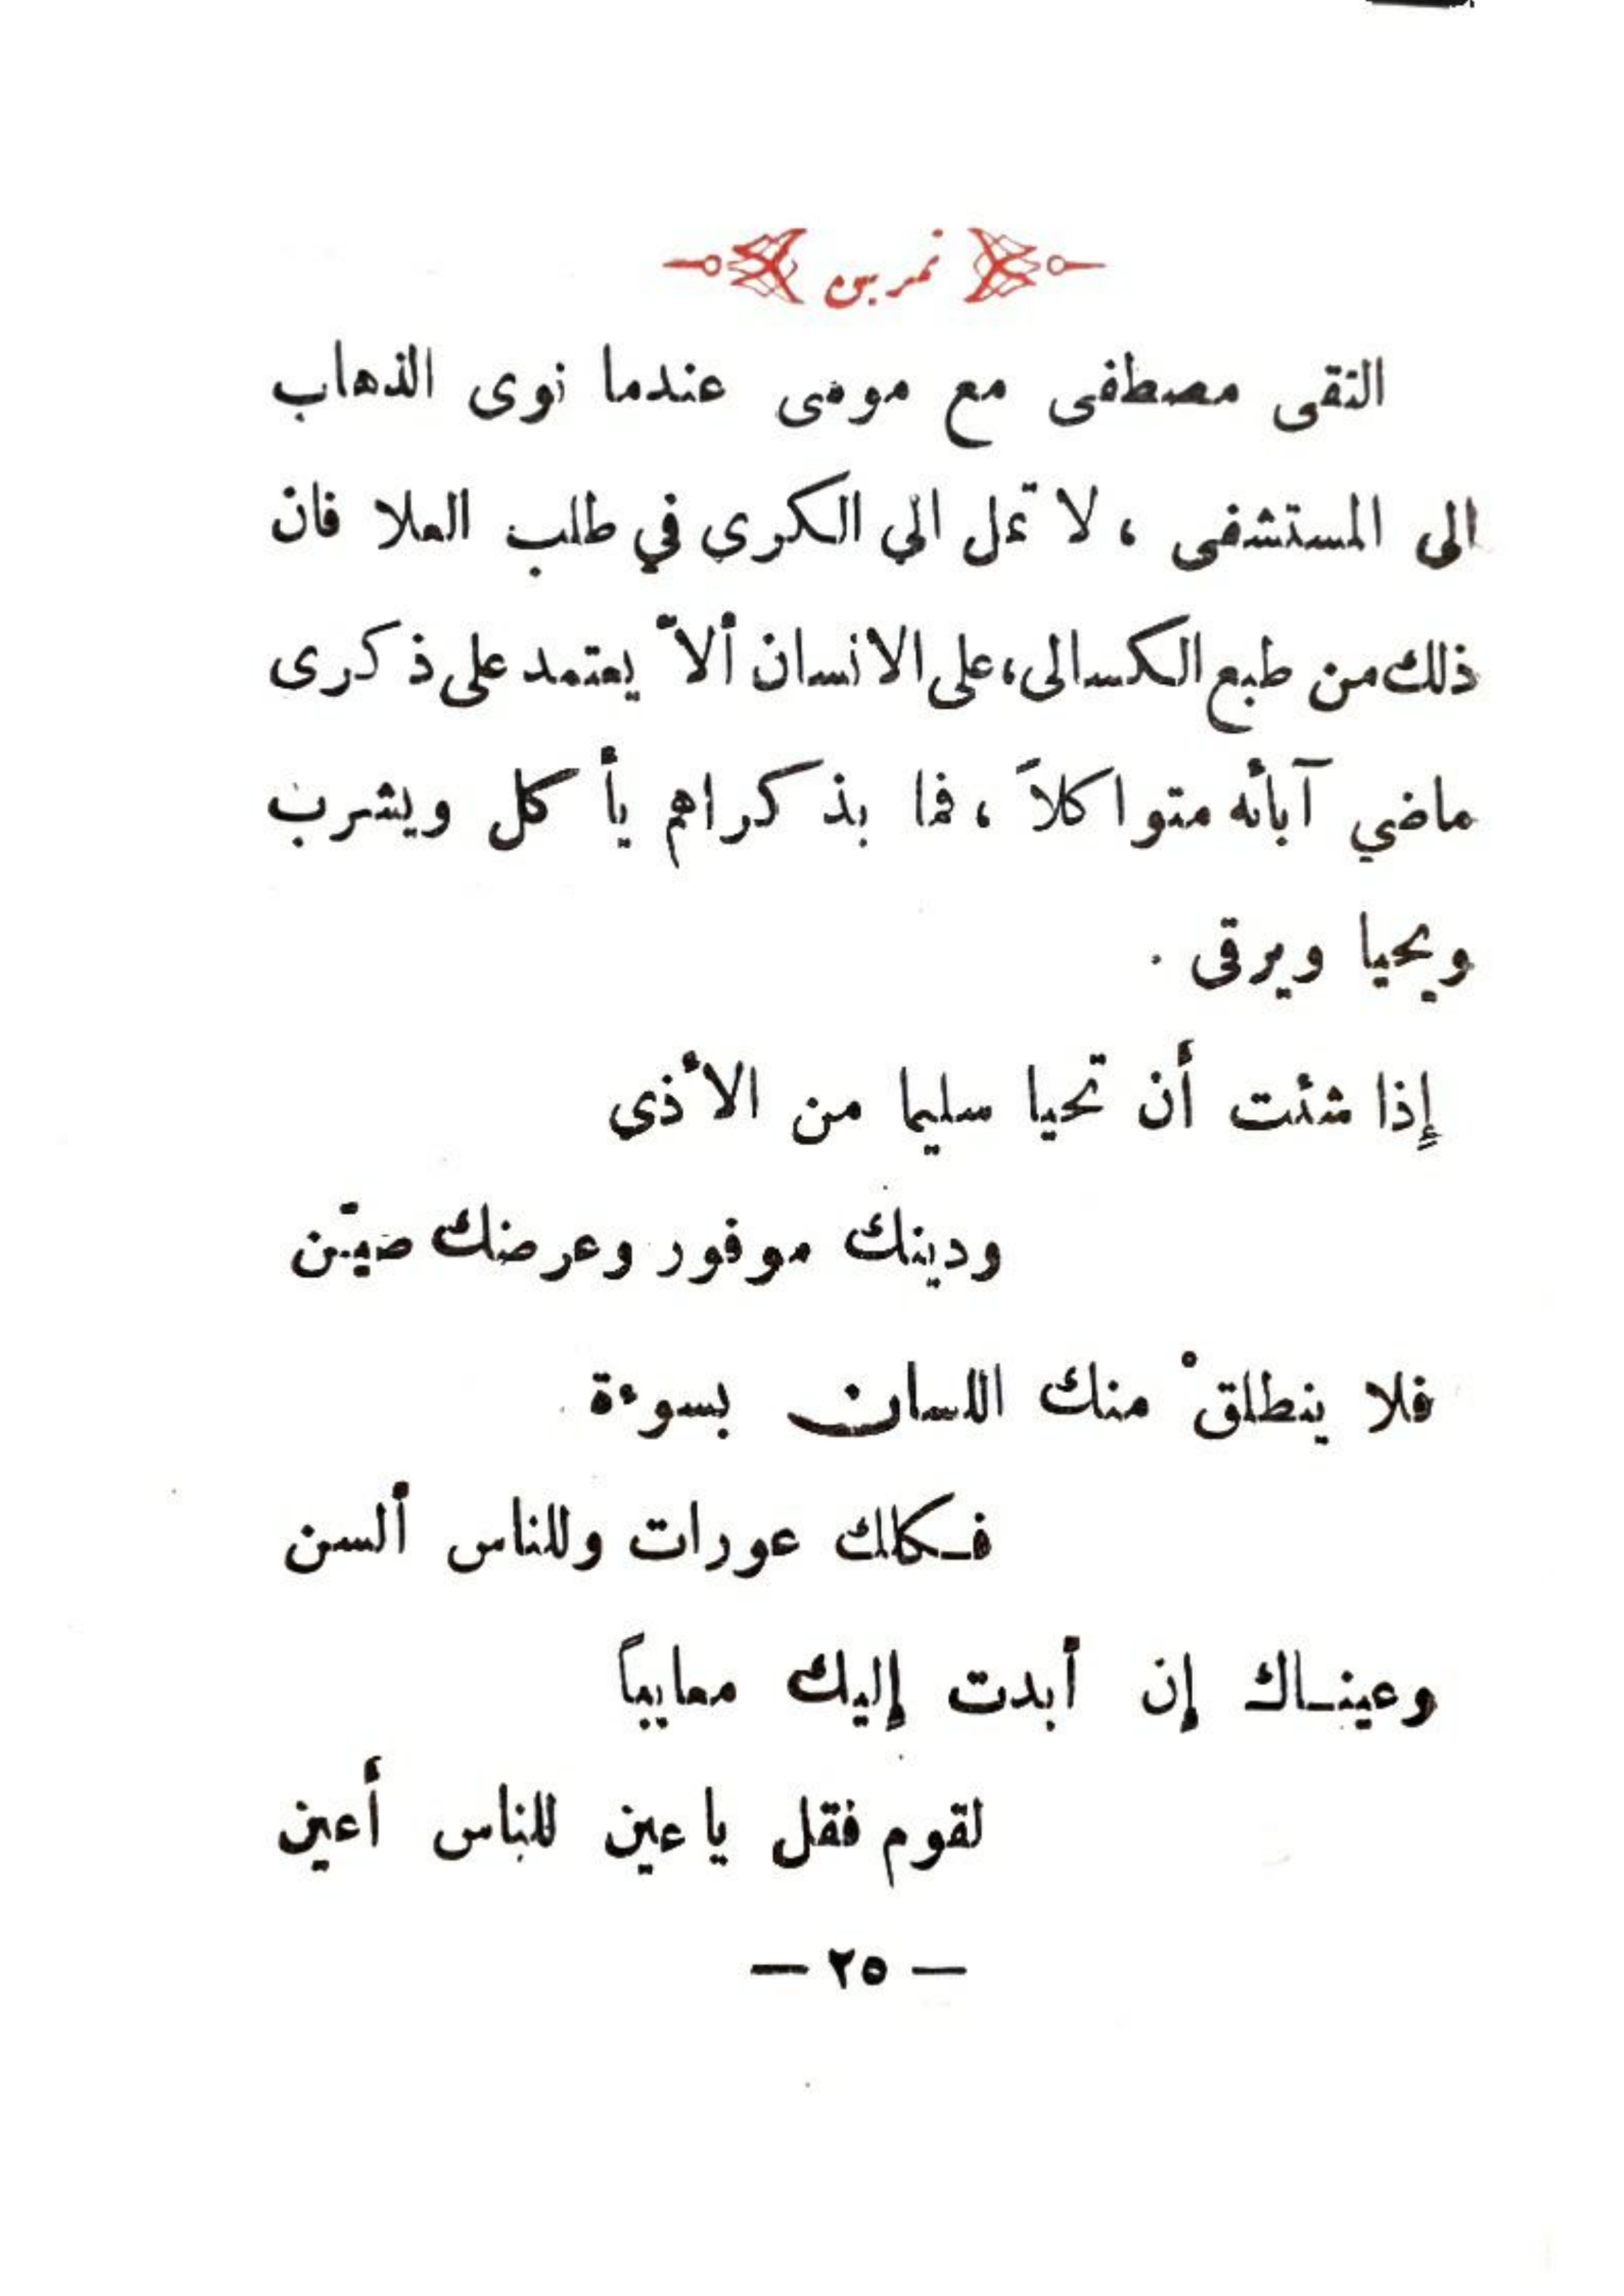 تمرين
التقى مصطفى مع موسى عندما نوى الذهاب
الى المستشفى ، لا تمل الي الكرى في طلب العلا فان
ذلك من طبع الكسالى، على الانسان ألاّ يعتمد على ذكرى
ماضي آبائه متواكلاً ، فما بذكراهم يأكل ويشرب
ويحيا ويرقى .
إذا شئت أن تحيا سليما من الأذى
ودينك موفور وعرضك صيّن
فلا ينطلقْ منك اللسان بسوءة
فكلك عورات وللناس ألسن
وعينـاك إن أبدت إليك معايباً
لقوم فقل يا عين للناس أعين
— ٢٥ —